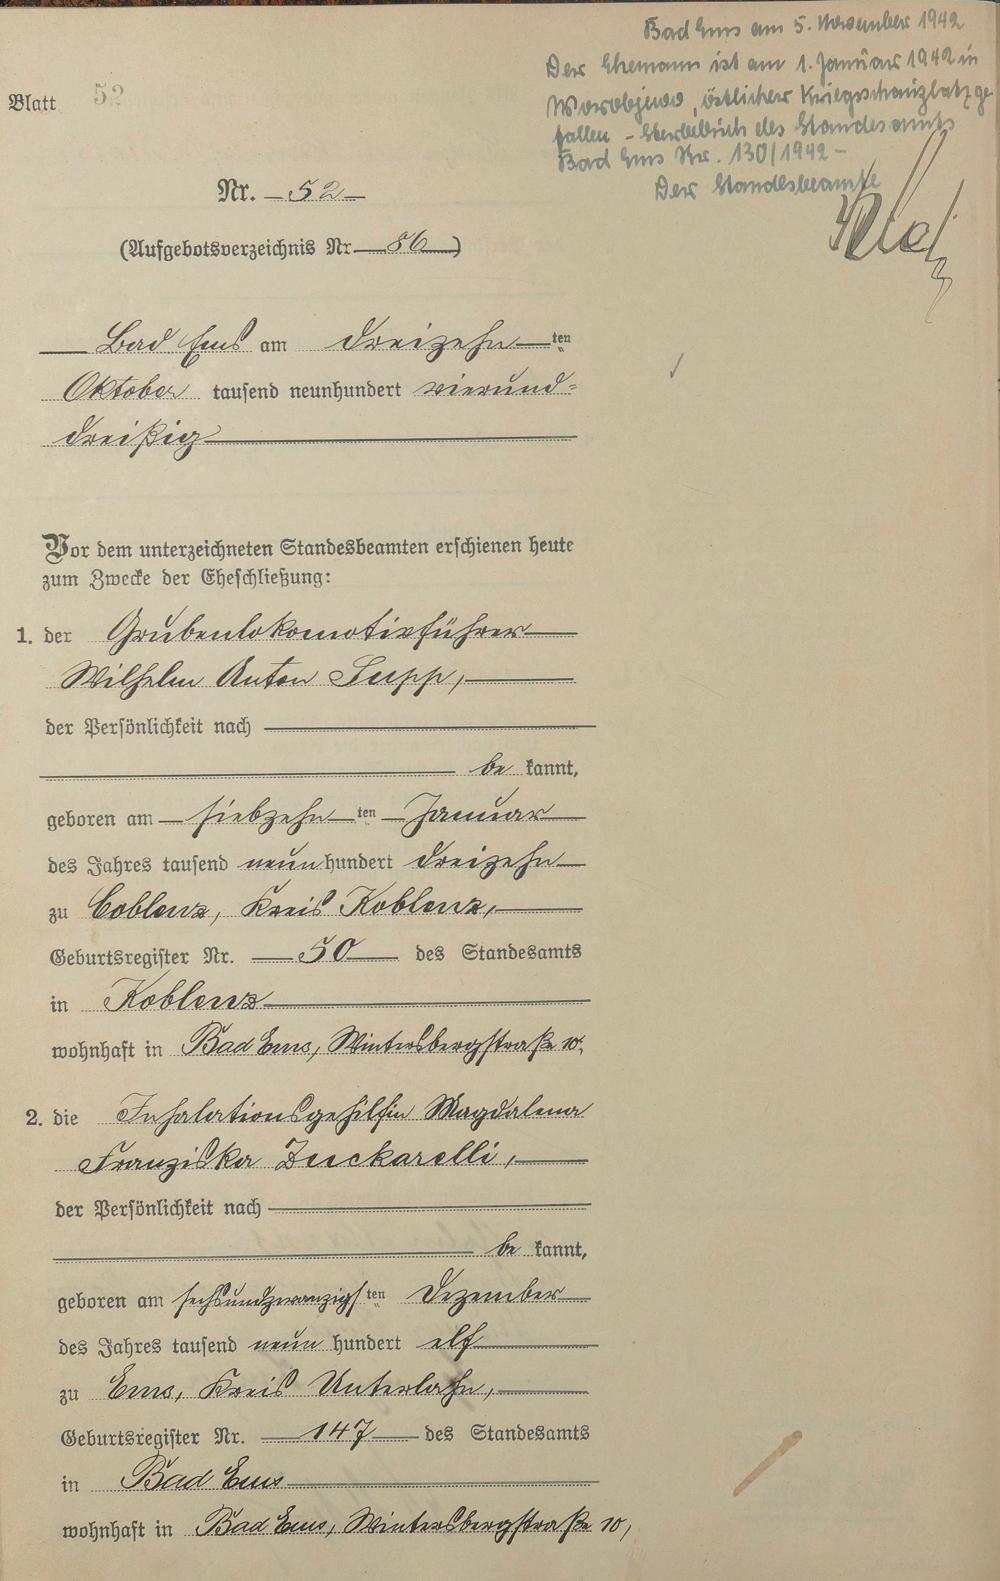 Bad Ems am 5. November 1942
Der Ehemann ist am 1. Januar 1942 in
Worobjewo, östlicher Kriegsschauplatz ge
fallen - Sterbebuch des Standesamts
Bad Ems Nr. 130/1942 -
Der Standesbeamte
Blatt 52
Nr. 52
(Aufgebotsverzeichnis Nr. 56)
Bad Ems am dreizehn ten
Oktober tausend neunhundert vierund=
dreißig
Vor dem unterzeichneten Standesbeamten erschienen heute
zum Zwecke der Eheschließung:
1. der Grubenlokomotivführer
Wilhelm Anton Supp,
der Persönlichkeit nach
be kannt,
geboren am siebzehn ten Januar
des Jahres tausend neun hundert dreizehn
zu Coblenz, Kreis Koblenz,
Geburtsregister Nr. 50 des Standesamts
in Koblenz
wohnhaft in Bad Ems, Wintersbergstraße 10,
2. die Inhalationsgehilfin Magdalena
Franziska Zuckarelli,
der Persönlichkeit nach
be kannt,
geboren am sechsundzwanzigs ten Dezember
des Jahres tausend neun hundert elf
zu Ems, Kreis Unterlahn,
Geburtsregister Nr. 147 des Standesamts
in Bad Ems
wohnhaft in Bad Ems, Wintersbergstraße 10,